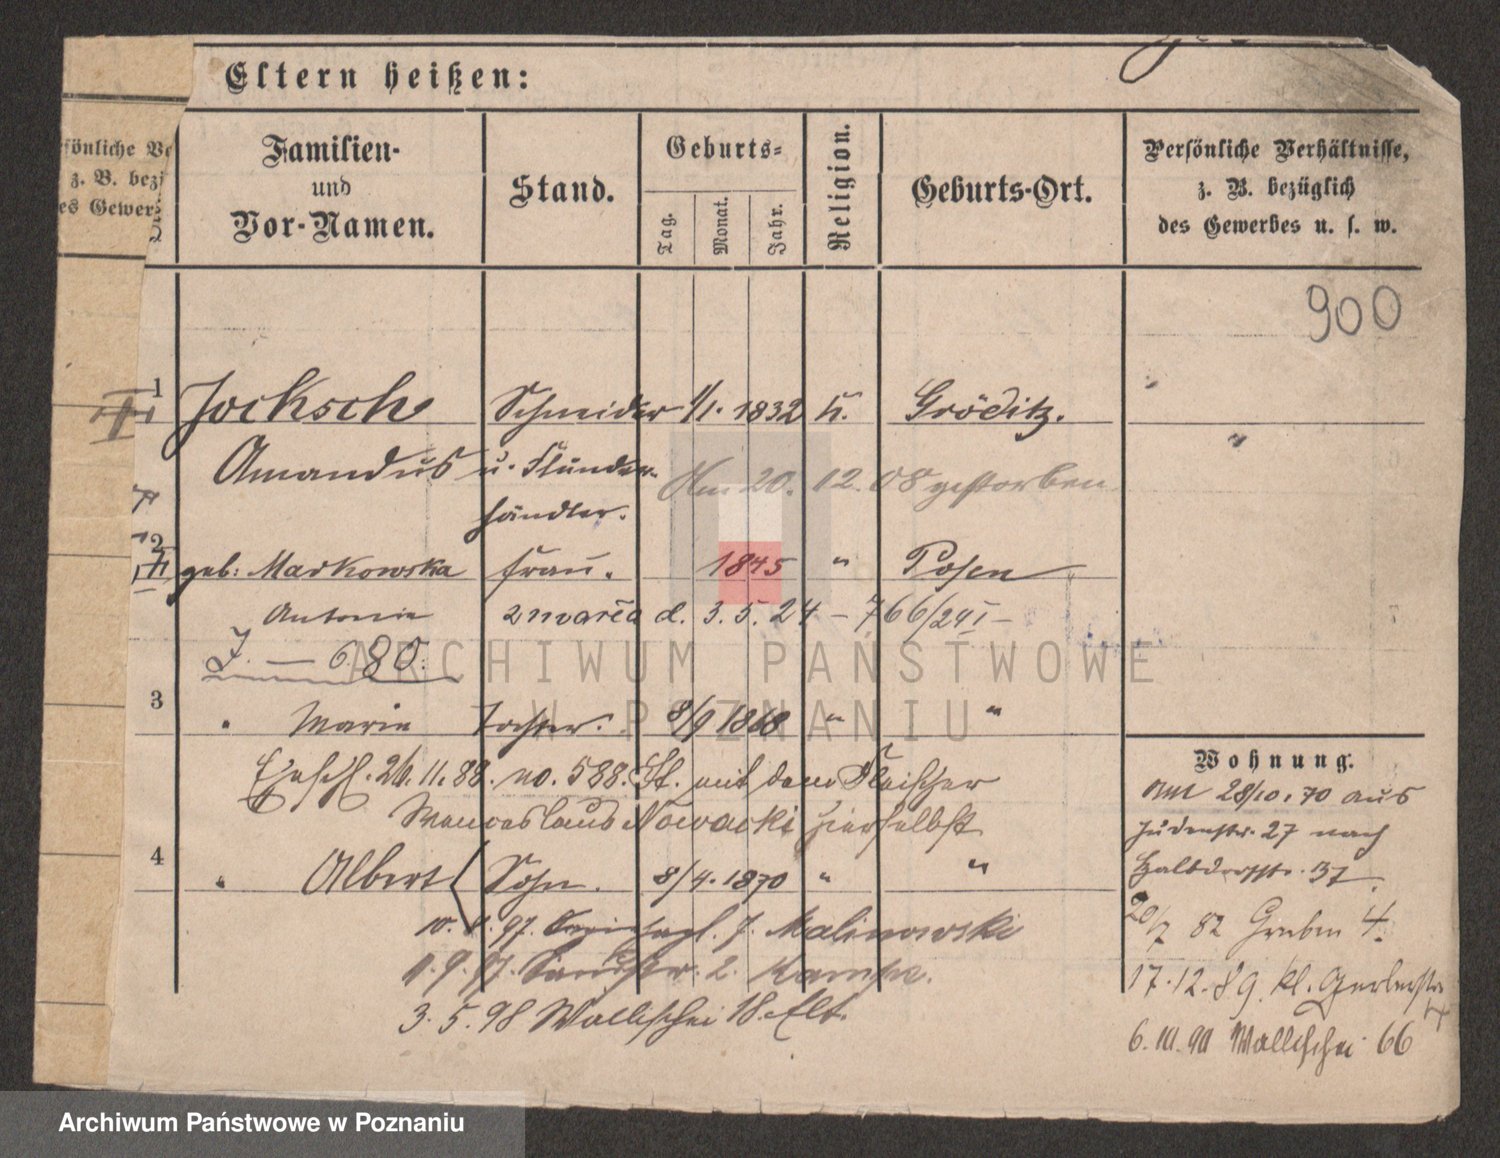 Eltern heißen:
sönliche Ve
z. B. bezi
es Gewer
Familien-
und
Vor-Namen.
Stand.
Geburts-
Tag.
Monat.
Jahr.
Religion.
Geburts-Ort.
Persönliche Verhältnisse,
z. B. bezüglich
des Gewerbes u. s. w.
900
1
Jocksch Schneider 1/1. 1832 k. Gröditz.
Amandus u.
händler.
Am 20. 12. 08 gestorben
2
geb: Markowska Frau. 1845 " Posen
Antonie zmarła d. 3. 5. 24 - 766/24 I -
J. — 680.
ARCHIWUM PAŃSTWOWE
W POZNANIU
3
" Marie Tochter. 8/9 1868 " "
Ehesch. 26. 11. 88. no. 588. mit dem Fleischer
Wenceslaus Nowacki hierselbst
4
" Albert Sohn. 8/4. 1870 " "
97. J. Malinowski
2.
3. 5. 98 Wallischei 18. Elt.
Wohnung.
Am 28/10. 70 aus
Judenstr. 27 nach
Halbdorfstr. 37.
20/7 82 Graben 4.
17. 12. 89. kl. Gerberstr
6. 10. 90 Wallischei 66
Archiwum Państwowe w Poznaniu